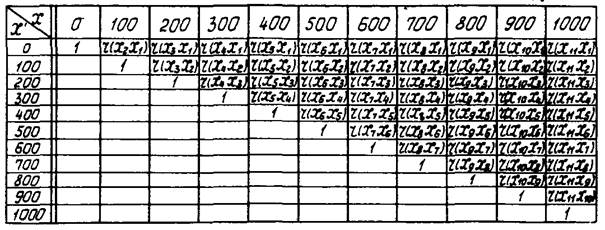 x' x 0 100 200 300 400 500 600 700 800 900 1000
0 1 τ(x₂x₁) τ(x₃x₁) τ(x₄x₁) τ(x₅x₁) τ(x₆x₁) τ(x₇x₁) τ(x₈x₁) τ(x₉x₁) τ(x₁₀x₁) τ(x₁₁x₁)
100 1 τ(x₃x₂) τ(x₄x₂) τ(x₅x₂) τ(x₆x₂) τ(x₇x₂) τ(x₈x₂) τ(x₉x₂) τ(x₁₀x₂) τ(x₁₁x₂)
200 1 τ(x₄x₃) τ(x₅x₃) τ(x₆x₃) τ(x₇x₃) τ(x₈x₃) τ(x₉x₃) τ(x₁₀x₃) τ(x₁₁x₃)
300 1 τ(x₅x₄) τ(x₆x₄) τ(x₇x₄) τ(x₈x₄) τ(x₉x₄) τ(x₁₀x₄) τ(x₁₁x₄)
400 1 τ(x₆x₅) τ(x₇x₅) τ(x₈x₅) τ(x₉x₅) τ(x₁₀x₅) τ(x₁₁x₅)
500 1 τ(x₇x₆) τ(x₈x₆) τ(x₉x₆) τ(x₁₀x₆) τ(x₁₁x₆)
600 1 τ(x₈x₇) τ(x₉x₇) τ(x₁₀x₇) τ(x₁₁x₇)
700 1 τ(x₉x₈) τ(x₁₀x₈) τ(x₁₁x₈)
800 1 τ(x₁₀x₉) τ(x₁₁x₉)
900 1 τ(x₁₁x₁₀)
1000 1